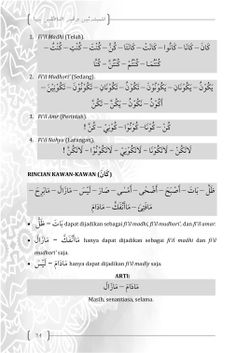 1. Fi'il Madhi (Telah).
كَانَ – كَانَا – كَانُوا – كَانَتْ – كَانَتَا – كُنَّ – كُنْتَ – كُنْتِ – كُنْتُ –
كُنْتُمَا – كُنْتُمْ – كُنْتُنَّ – كُنَّا
2. Fi'il Mudhori' (Sedang)
يَكُوْنُ – يَكُوْنَانِ – يَكُوْنُوْنَ – تَكُوْنُ – تَكُوْنَانِ – تَكُوْنُوْنَ – تَكُوْنِيْنَ –
أَكُوْنُ – نَكُوْنُ – يَكُنَّ – تَكُنَّ
3. Fi'il Amr (Perintah).
كُنْ – كُوْنَا – كُوْنُوْا – كُوْنِي – كُنَّ !
4. Fi'il Nahyu (Larangan).
لَاتَكُنْ – لَاتَكُوْنَا – لَاتَكُوْنِيْ – لَاتَكُوْنُوْا – لَاتَكُنَّ !
RINCIAN KAWAN-KAWAN (كَانَ)
ظَلَّ – بَاتَ – أَصْبَحَ – أَضْحَى – أَمْسَى – صَارَ – لَيْسَ – مَازَالَ – مَابَرِحَ –
مَافَتِئَ – مَاانْفَكَّ – مَادَامَ
• ظَلَّ – بَاتَ dapat dijadikan sebagai fi'il madhi, fi'il mudhori', dan fi'il amar.
• مَازَالَ – مَاانْفَكَّ hanya dapat dijadikan sebagai fi'il madhi dan fi'il
mudhori' saja.
• لَيْسَ – مَادَامَ hanya dapat dijadikan fi'il madly saja.
ARTI:
مَادَامَ – مَازَالَ
Masih, senantiasa, selama.